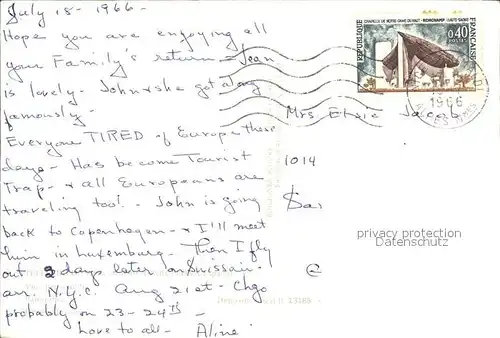 July 18 - 1966 -
Hope you are enjoying all
your Family's return - Jean
is lovely. John & she got along
famously.
Everyone TIRED of Europe these
days - Has become Tourist
Trap - & all Europeans are
traveling too! - John is going
back to Copenhagen - & I'll meet
him in Luxemburg. Then I fly
out 2 days later on Suissair -
arr. N.Y.C. Aug 21st - Chgo
probably on 23 - 24th -
Love to all - Aline
CHAPELLE DE NOTRE-DAME DU HAUT - RONCHAMP (HAUTE-SAÔNE)
REPUBLIQUE
FRANÇAISE
0,40
POSTES
1966
Mrs. Elsie Jacob
1014
privacy protection
Datenschutz